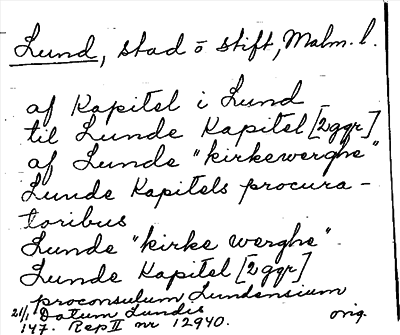 Lund, stad o stift, Malm. l.
af Kapitel i Lund
til Lunde Kapitel [2ggr]
af Lunde "kirkewerghe"
Lunde Kapitels procura-
toribus
Lunde "kirke werghe".
Lunde Kapitel [2ggr]
proconsulum Lundensium
21/1 Datum Lundis orig.
147. Rep II nr 12940.